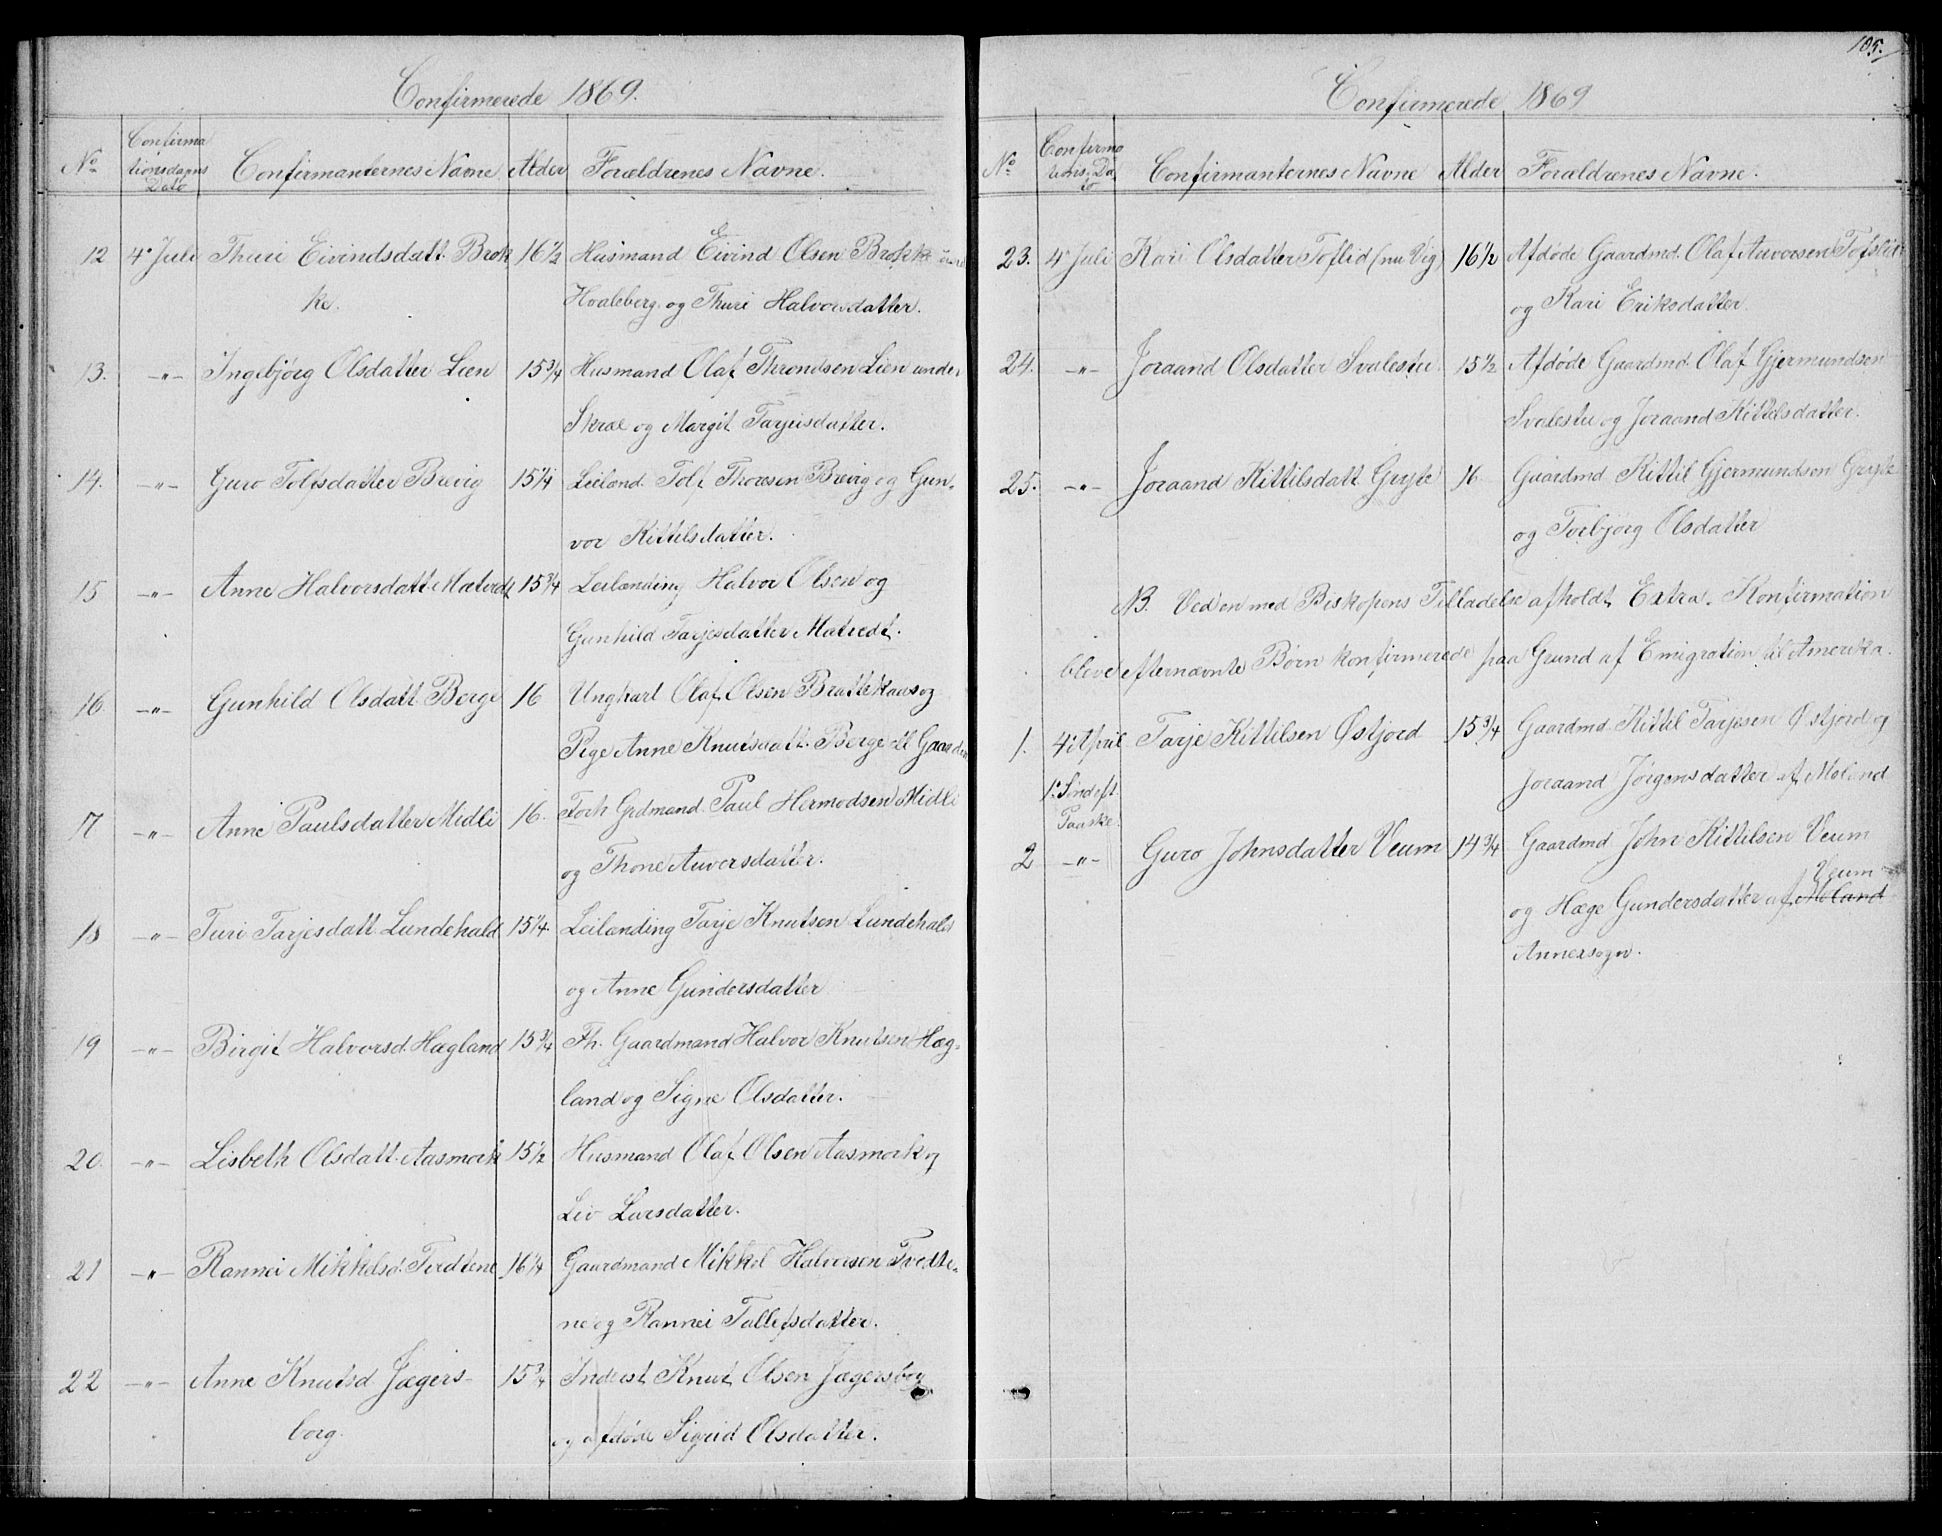 Confirmerede 1869.
No Confirma tionsdagens Dato Confirmanternes Navne Alder Forældrenes Navne.
12 4de Juli Thuri Eivindsdatt. Brok 16 1/2 Husmand Eivind Olsen Brokke under
ke. Hvaleberg og Thuri Halvorsdatter.
13. -"- Ingebjørg Olsdatter Lien 15 3/4 Husmand Olaf Throndsen Lien under
Skræ og Margit Tarjeisdatter.
14. -"- Guro Tolfsdatter Brevig 15 1/4 Leiland. Tolf Thoresen Brevig og Gun-
vor Kittilsdatter.
15 -"- Anne Halvorsdatt. Matvedt 15 3/4 Leilænding Halvor Olsen og
Gunhild Tarjesdatter Matvedt.
16. -"- Gunhild Olsdatt. Berge 16 Ungkarl Olaf Olsen Brattekaas og
Pige Anne Knutsdatt. Berge
17 -"- Anne Paulsdatter Midli 16. Forh Grdmand. Paul Hermodsen Midli
og Thone Auversdatter.
18 -"- Turi Tarjesdatt Lundehald 15 1/4. Leilænding Tarje Knutsen Lundehald
og Anne Gundersdatter
19 -"- Birgit Halvorsd. Hægland 15 3/4 Fh. Gaardmand Halvor Knutsen Hæg-
land og Signe Olsdatter.
20. -"- Lisbeth Olsdatt. Aasmork 15 1/2 Husmand Olaf Olsen Aasmork og
Liv Larsdatter.
21 -"- Rannei Mikkelsd. Tvedtene 16 1/4 Gaardmand Mikkel Halvorsen Tvedte-
ne og Rannei Tallefsdatter.
22 -"- Anne Knutsd Jægers- 15 3/4 Inderst Knut Olsen Jægersborg
borg. og afdøde Sigrid Olsdatter.
105.
Confirmerede 1869
No Confirma tions. Da to Confirmanternes Navne Alder Forældrenes Navne.
23. 4de Juli Kari Olsdatter Toflid (nu Vig) 16 1/2 Afdøde Gaardmd. Olaf Auversen Tofslid
og Kari Eriksdatter.
24. -"- Joraand Olsdatter Svalestu. 15 1/2 Afdøde Gaardmd. Olaf Gjermundsen
Svalestu og Joraand Kittilsdatter.
25. -"- Joraand Kittilsdatt Gryte 16 Gaardmd Kittil Gjermundson Gryte
og Torbjørg Olsdatter
NB. Ved en med Biskopens Tilladelse afholdt Extra. Konfirmation
bleve efternævnte Børn konfirmerede paa Grund af Emigration til Amerika.
1. 4de April Tarje Kittilsen Østjord 15 3/4 Gaardmd. Kittil Tarjesen Østjord og
1ste Sønd eft. Joraand Jørgensdatter af Moland
Paaske.
2 -"- Guro Johnsdatter Veum 14 3/4 Gaardmd John Kittilsen Veum
Veum
og Hæge Gundersdatter af Moland
Annexsogn.